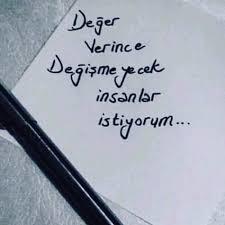 Değer
Verince
Değişmeyecek
insanlar
istiyorum...